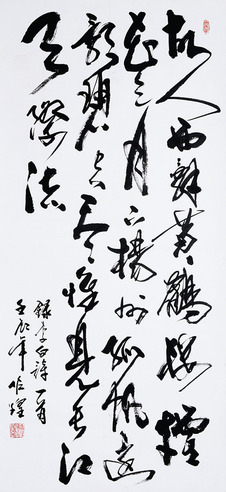 故人西辞黄鹤楼烟
花三月下扬州孤帆远
影碧空尽惟见长江
天际流
录李白诗一首
壬辰年